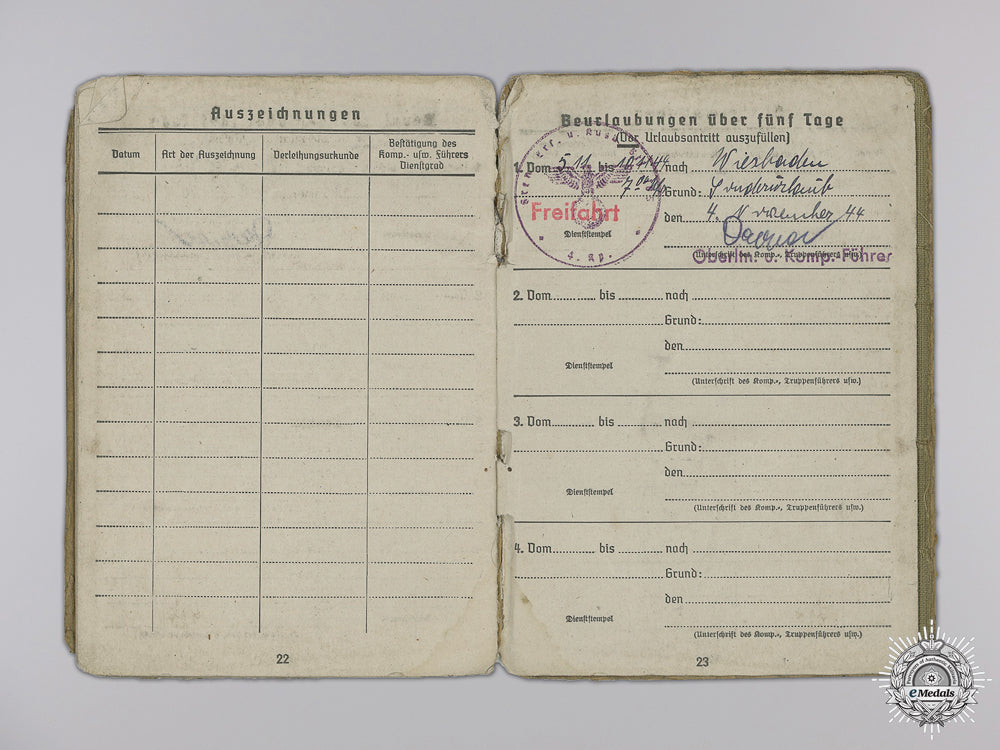 Auszeichnungen
Datum
Art der Auszeichnung
Verleihungsurkunde
Bestätigung des
Komp.- usw. Führers
Dienstgrad
22
Beurlaubungen über fünf Tage
(Vor Urlaubsantritt auszufüllen)
1. Vom 5.11. bis nach Wiesbaden
Grund: Sonderurlaub
Freifahrt
den 4. November 44
Dienststempel
4. Kp.
(Unterschrift des Komp.-, Truppenführers usw.)
Oberltn. u. Komp.-Führer
2. Vom bis nach
Grund:
den
Dienststempel
(Unterschrift des Komp.-, Truppenführers usw.)
3. Vom bis nach
Grund:
den
Dienststempel
(Unterschrift des Komp.-, Truppenführers usw.)
4. Vom bis nach
Grund:
den
Dienststempel
(Unterschrift des Komp.-, Truppenführers usw.)
23
eMedals